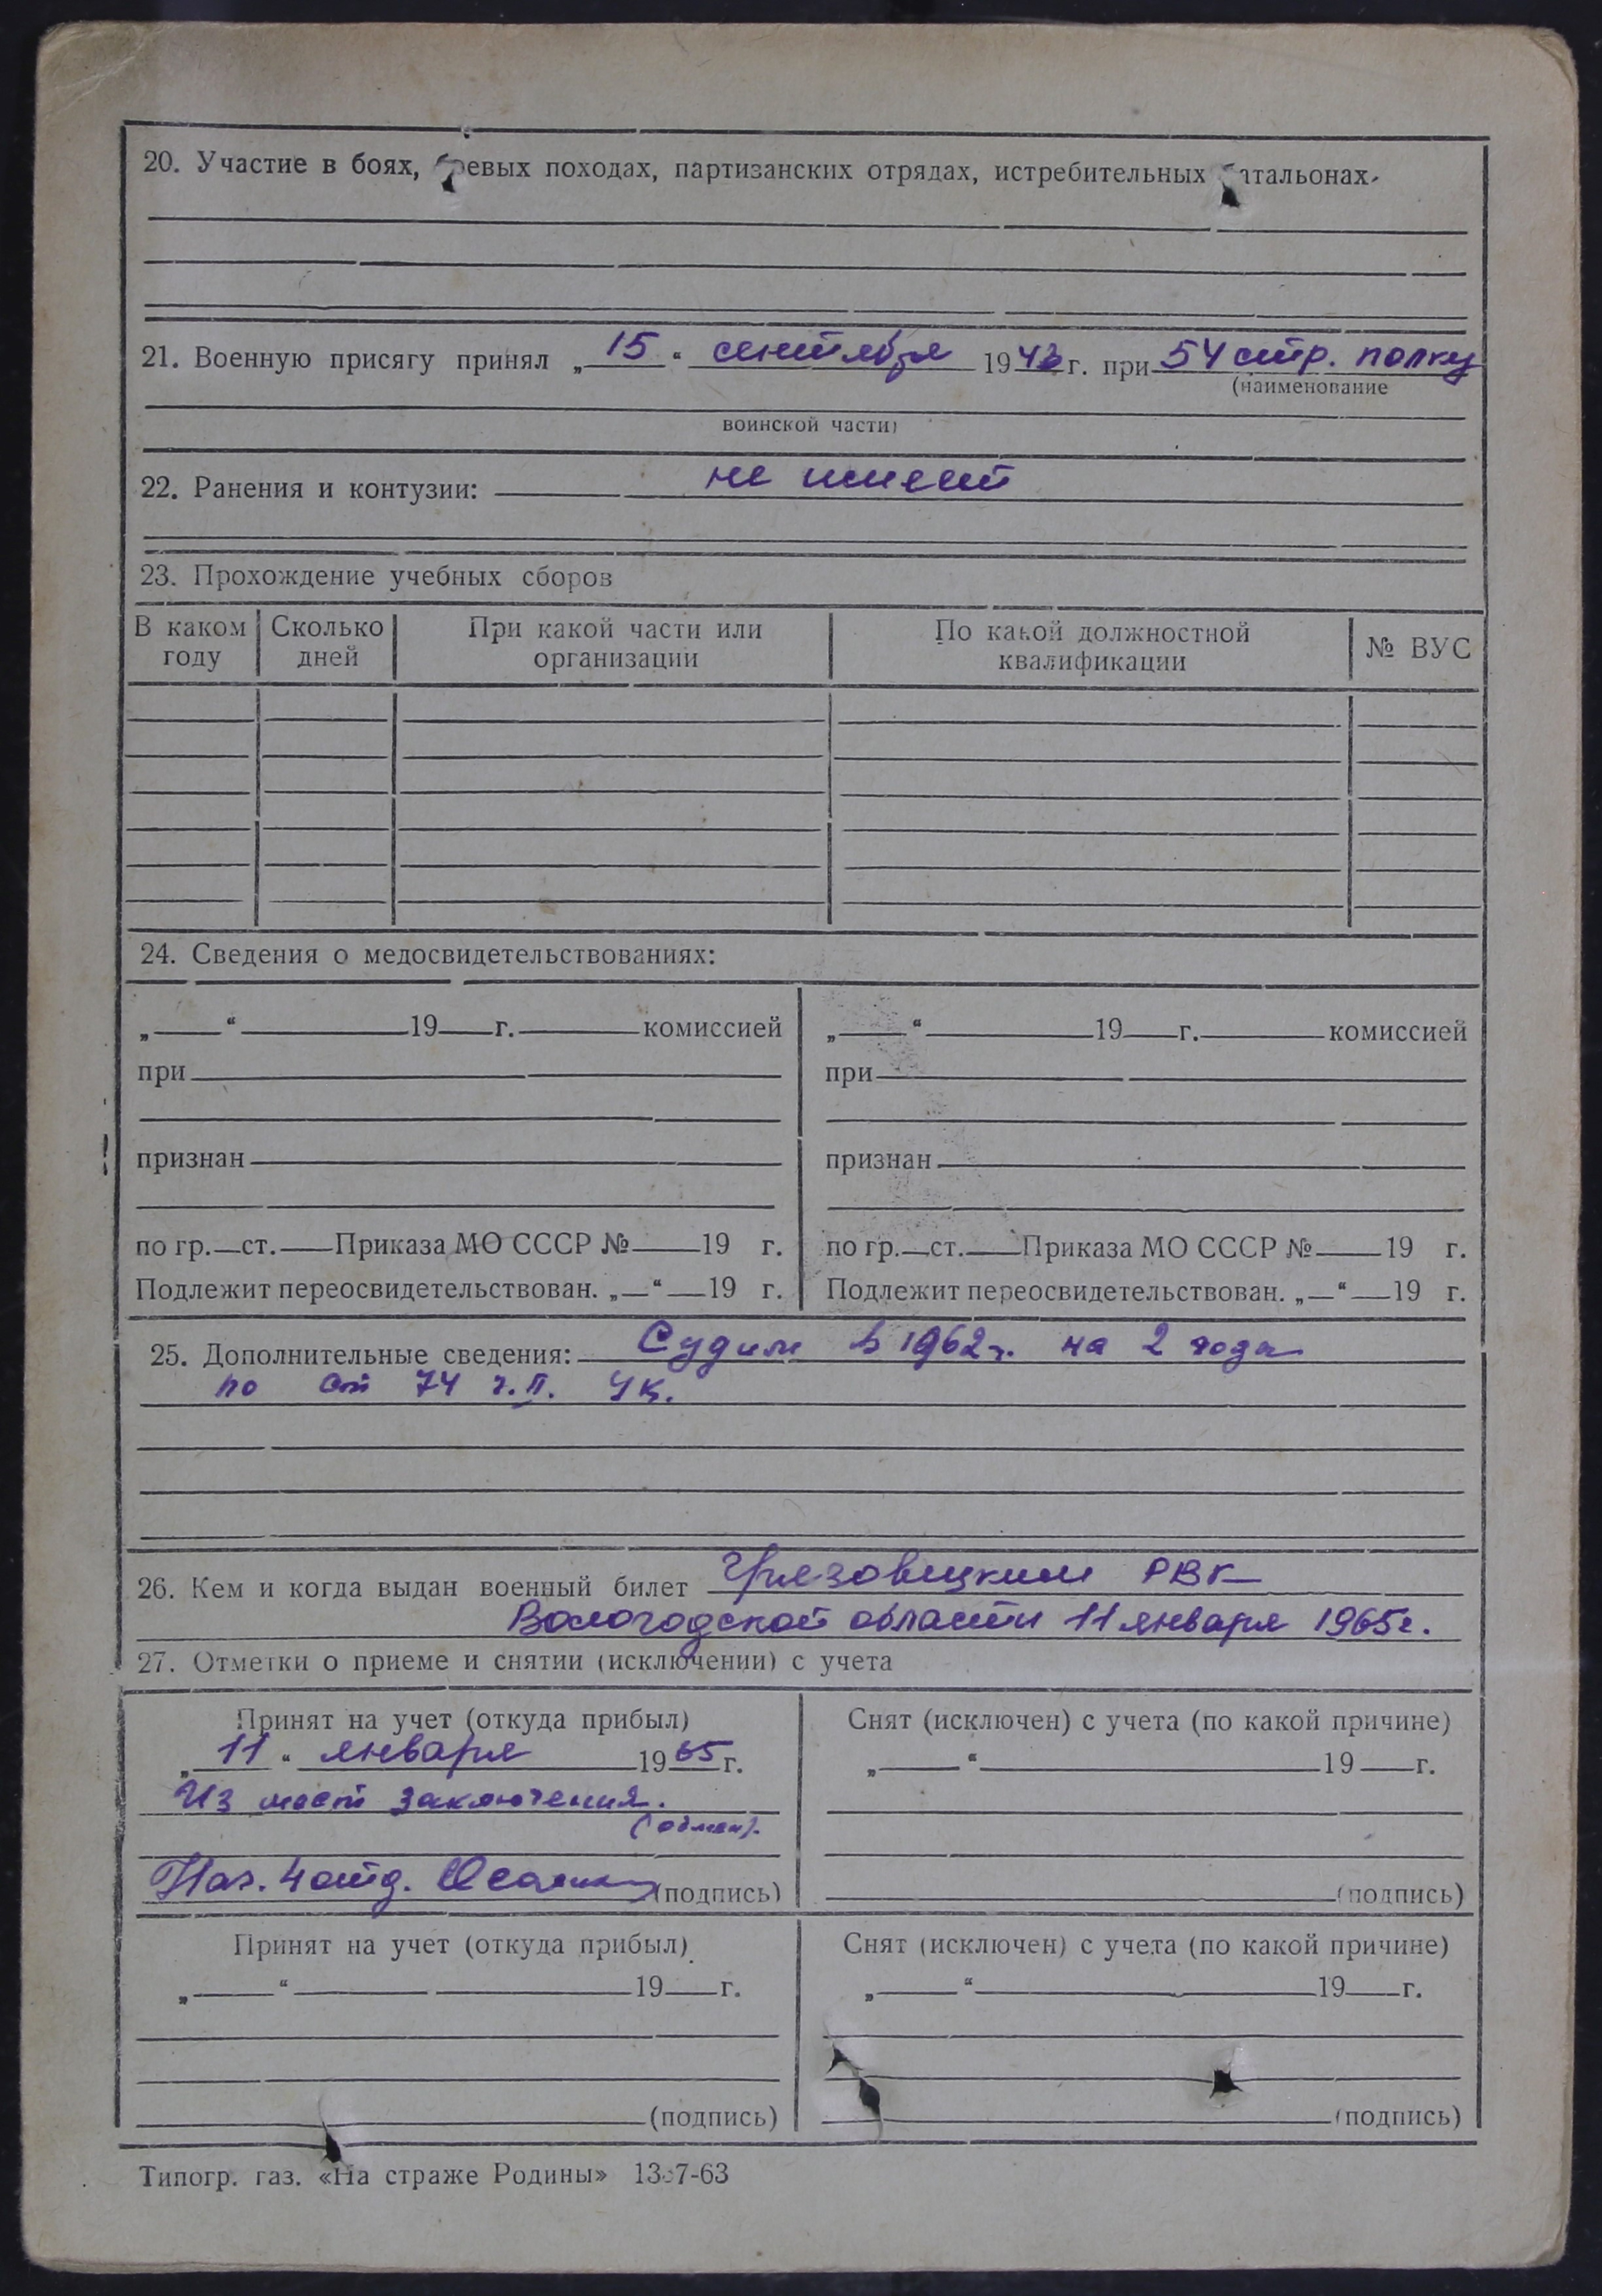 20. Участие в боях, боевых походах, партизанских отрядах, истребительных батальонах.
21. Военную присягу принял „ 15 “ сентября 1943 г. при 54 стр. полку
(наименование
воинской части)
22. Ранения и контузии: не имеет
23. Прохождение учебных сборов
В каком году Сколько дней При какой части или организации По какой должностной квалификации № ВУС
24. Сведения о медосвидетельствованиях:
„ “ 19 г. комиссией „ “ 19 г. комиссией
при при
признан признан
по гр. ст. Приказа МО СССР № 19 г. по гр. ст. Приказа МО СССР № 19 г.
Подлежит переосвидетельствован. „ “ 19 г. Подлежит переосвидетельствован. „ “ 19 г.
25. Дополнительные сведения: Судим в 1962г. на 2 года
по ст 74 ч.II. УК.
26. Кем и когда выдан военный билет Грязовецким РВК
Вологодской области 11 января 1965г.
27. Отметки о приеме и снятии (исключении) с учета
Принят на учет (откуда прибыл) Снят (исключен) с учета (по какой причине)
„ 11 “ января 1965 г. „ “ 19 г.
Из мест заключения.
(обмен).
Нач. 4 отд. (подпись) (подпись)
Принят на учет (откуда прибыл) Снят (исключен) с учета (по какой причине)
„ “ 19 г. „ “ 19 г.
(подпись) (подпись)
Типогр. газ. «На страже Родины»